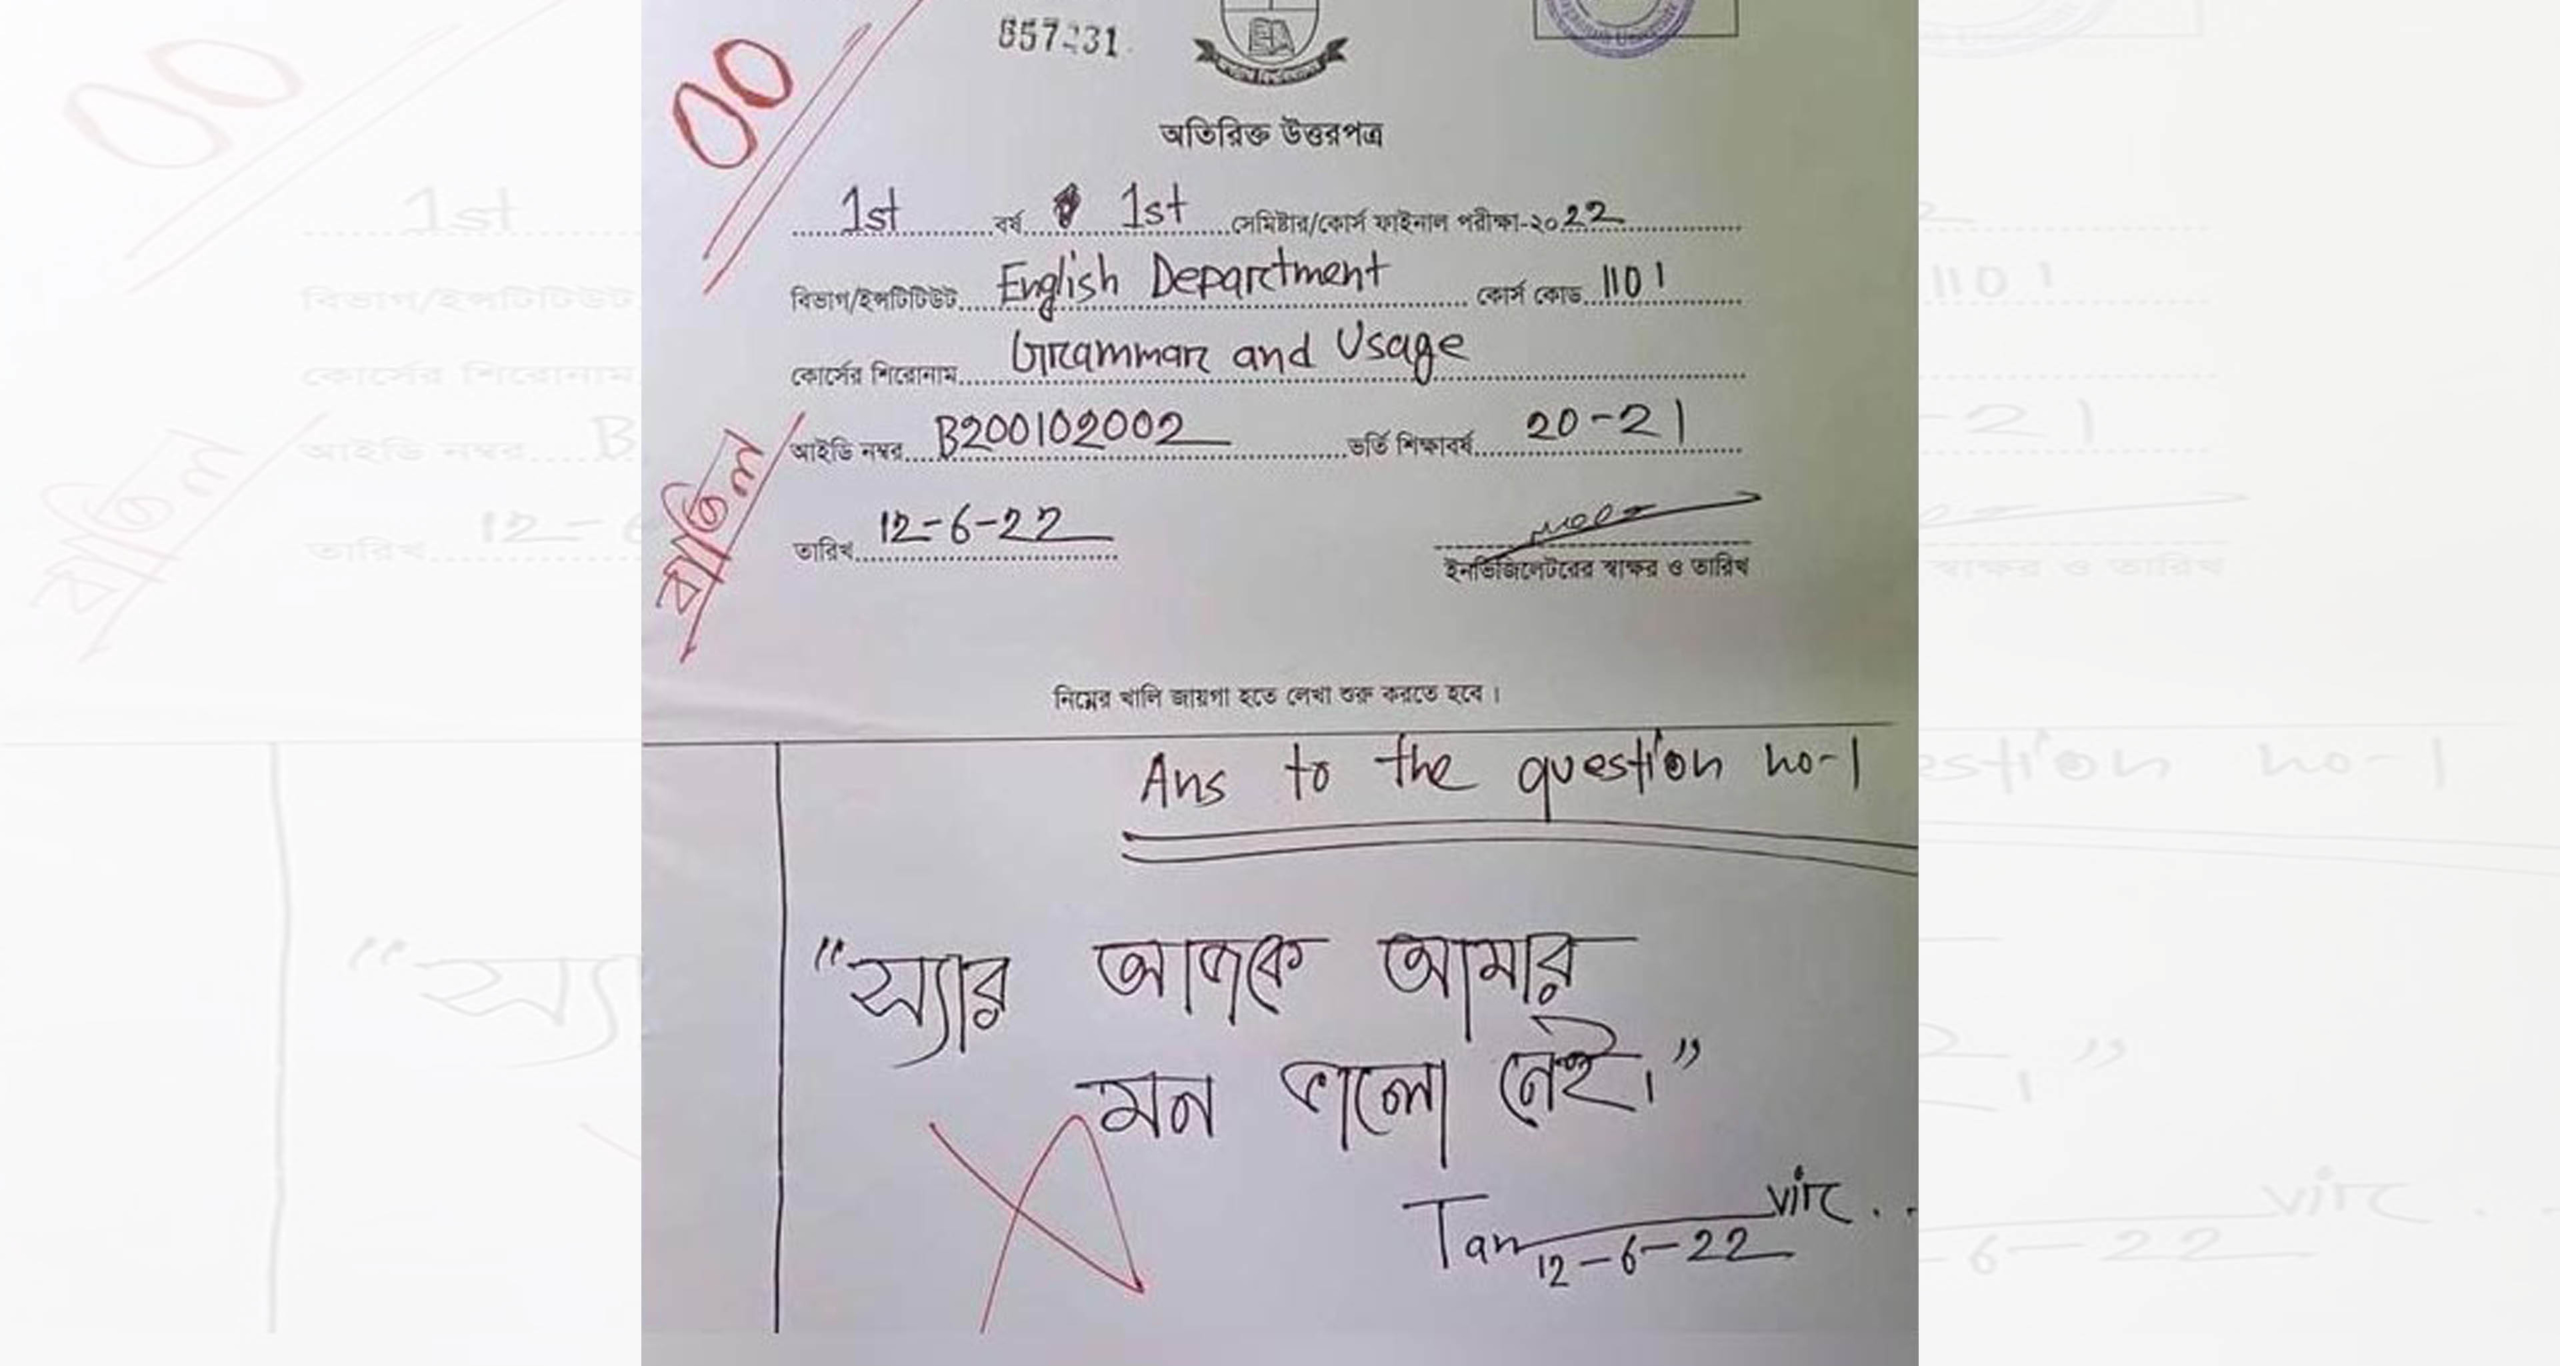 00
অতিরিক্ত উত্তরপত্র
1st বর্ষ 1st সেমিষ্টার/কোর্স ফাইনাল পরীক্ষা-২০22
বিভাগ/ইন্সটিটিউট English Department কোর্স কোড 1101
কোর্সের শিরোনাম Grammar and Usage
আইডি নম্বর B200102002 ভর্তি শিক্ষাবর্ষ 20-21
তারিখ 12-6-22
ইনভিজিলেটরের স্বাক্ষর ও তারিখ
বাতিল
নিম্নের খালি জায়গা হতে লেখা শুরু করতে হবে।
Ans to the question no-1
"স্যার আজকে আমার
মন ভালো নেই।"
Tanvir..
12-6-22